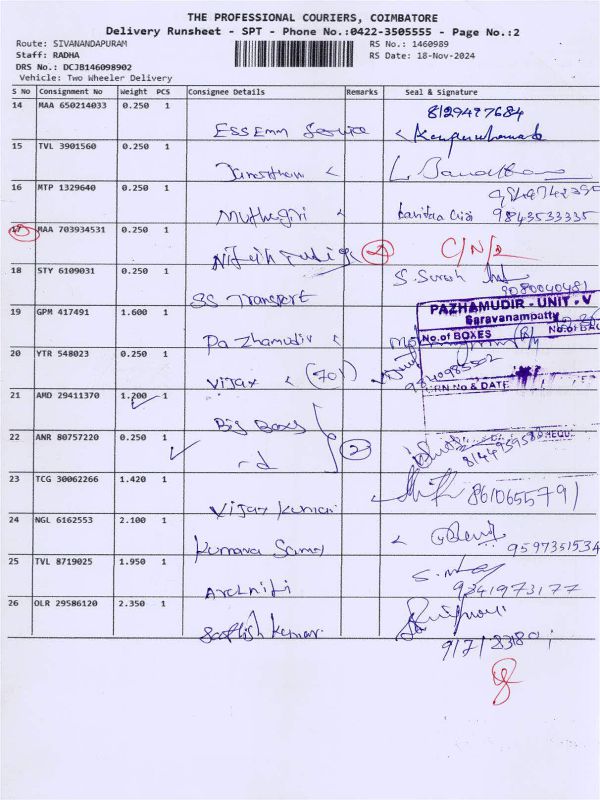 THE PROFESSIONAL COURIERS, COIMBATORE
Delivery Runsheet - SPT - Phone No.:0422-3505555 - Page No.:2
Route: SIVANANDAPURAM
Staff: RADHA
DRS No.: DCJB146098902
Vehicle: Two Wheeler Delivery
RS No.: 1460989
RS Date: 18-Nov-2024
S No Consignment No Weight PCS Consignee Details Remarks Seal & Signature
14 MAA 650214033 0.250 1 ESSEmm Service 8129477684
15 TVL 3901560 0.250 1
16 MTP 1329640 0.250 1 Muthagiri 9843533335
17 MAA 703934531 0.250 1 C/N/2
18 STY 6109031 0.250 1 SS Transport S. Suresh 9080040481
19 GPM 417491 1.600 1 Pazhamudir
PAZHAMUDIR - UNIT - V
Saravanampatty
No.of BOXES
GRN No & DATE
20 YTR 548023 0.250 1 Vijay (701) 9840985502
21 AMD 29411370 1.200 1 Big Boxes
22 ANR 80757220 0.250 1 -d 2
23 TCG 30062266 1.420 1 Vijay Kumar 8610655791
24 NGL 6162553 2.100 1 Kumara Samy 9597351534
25 TVL 8719025 1.950 1 9841973177
26 OLR 29586120 2.350 1 Sathish Kumar